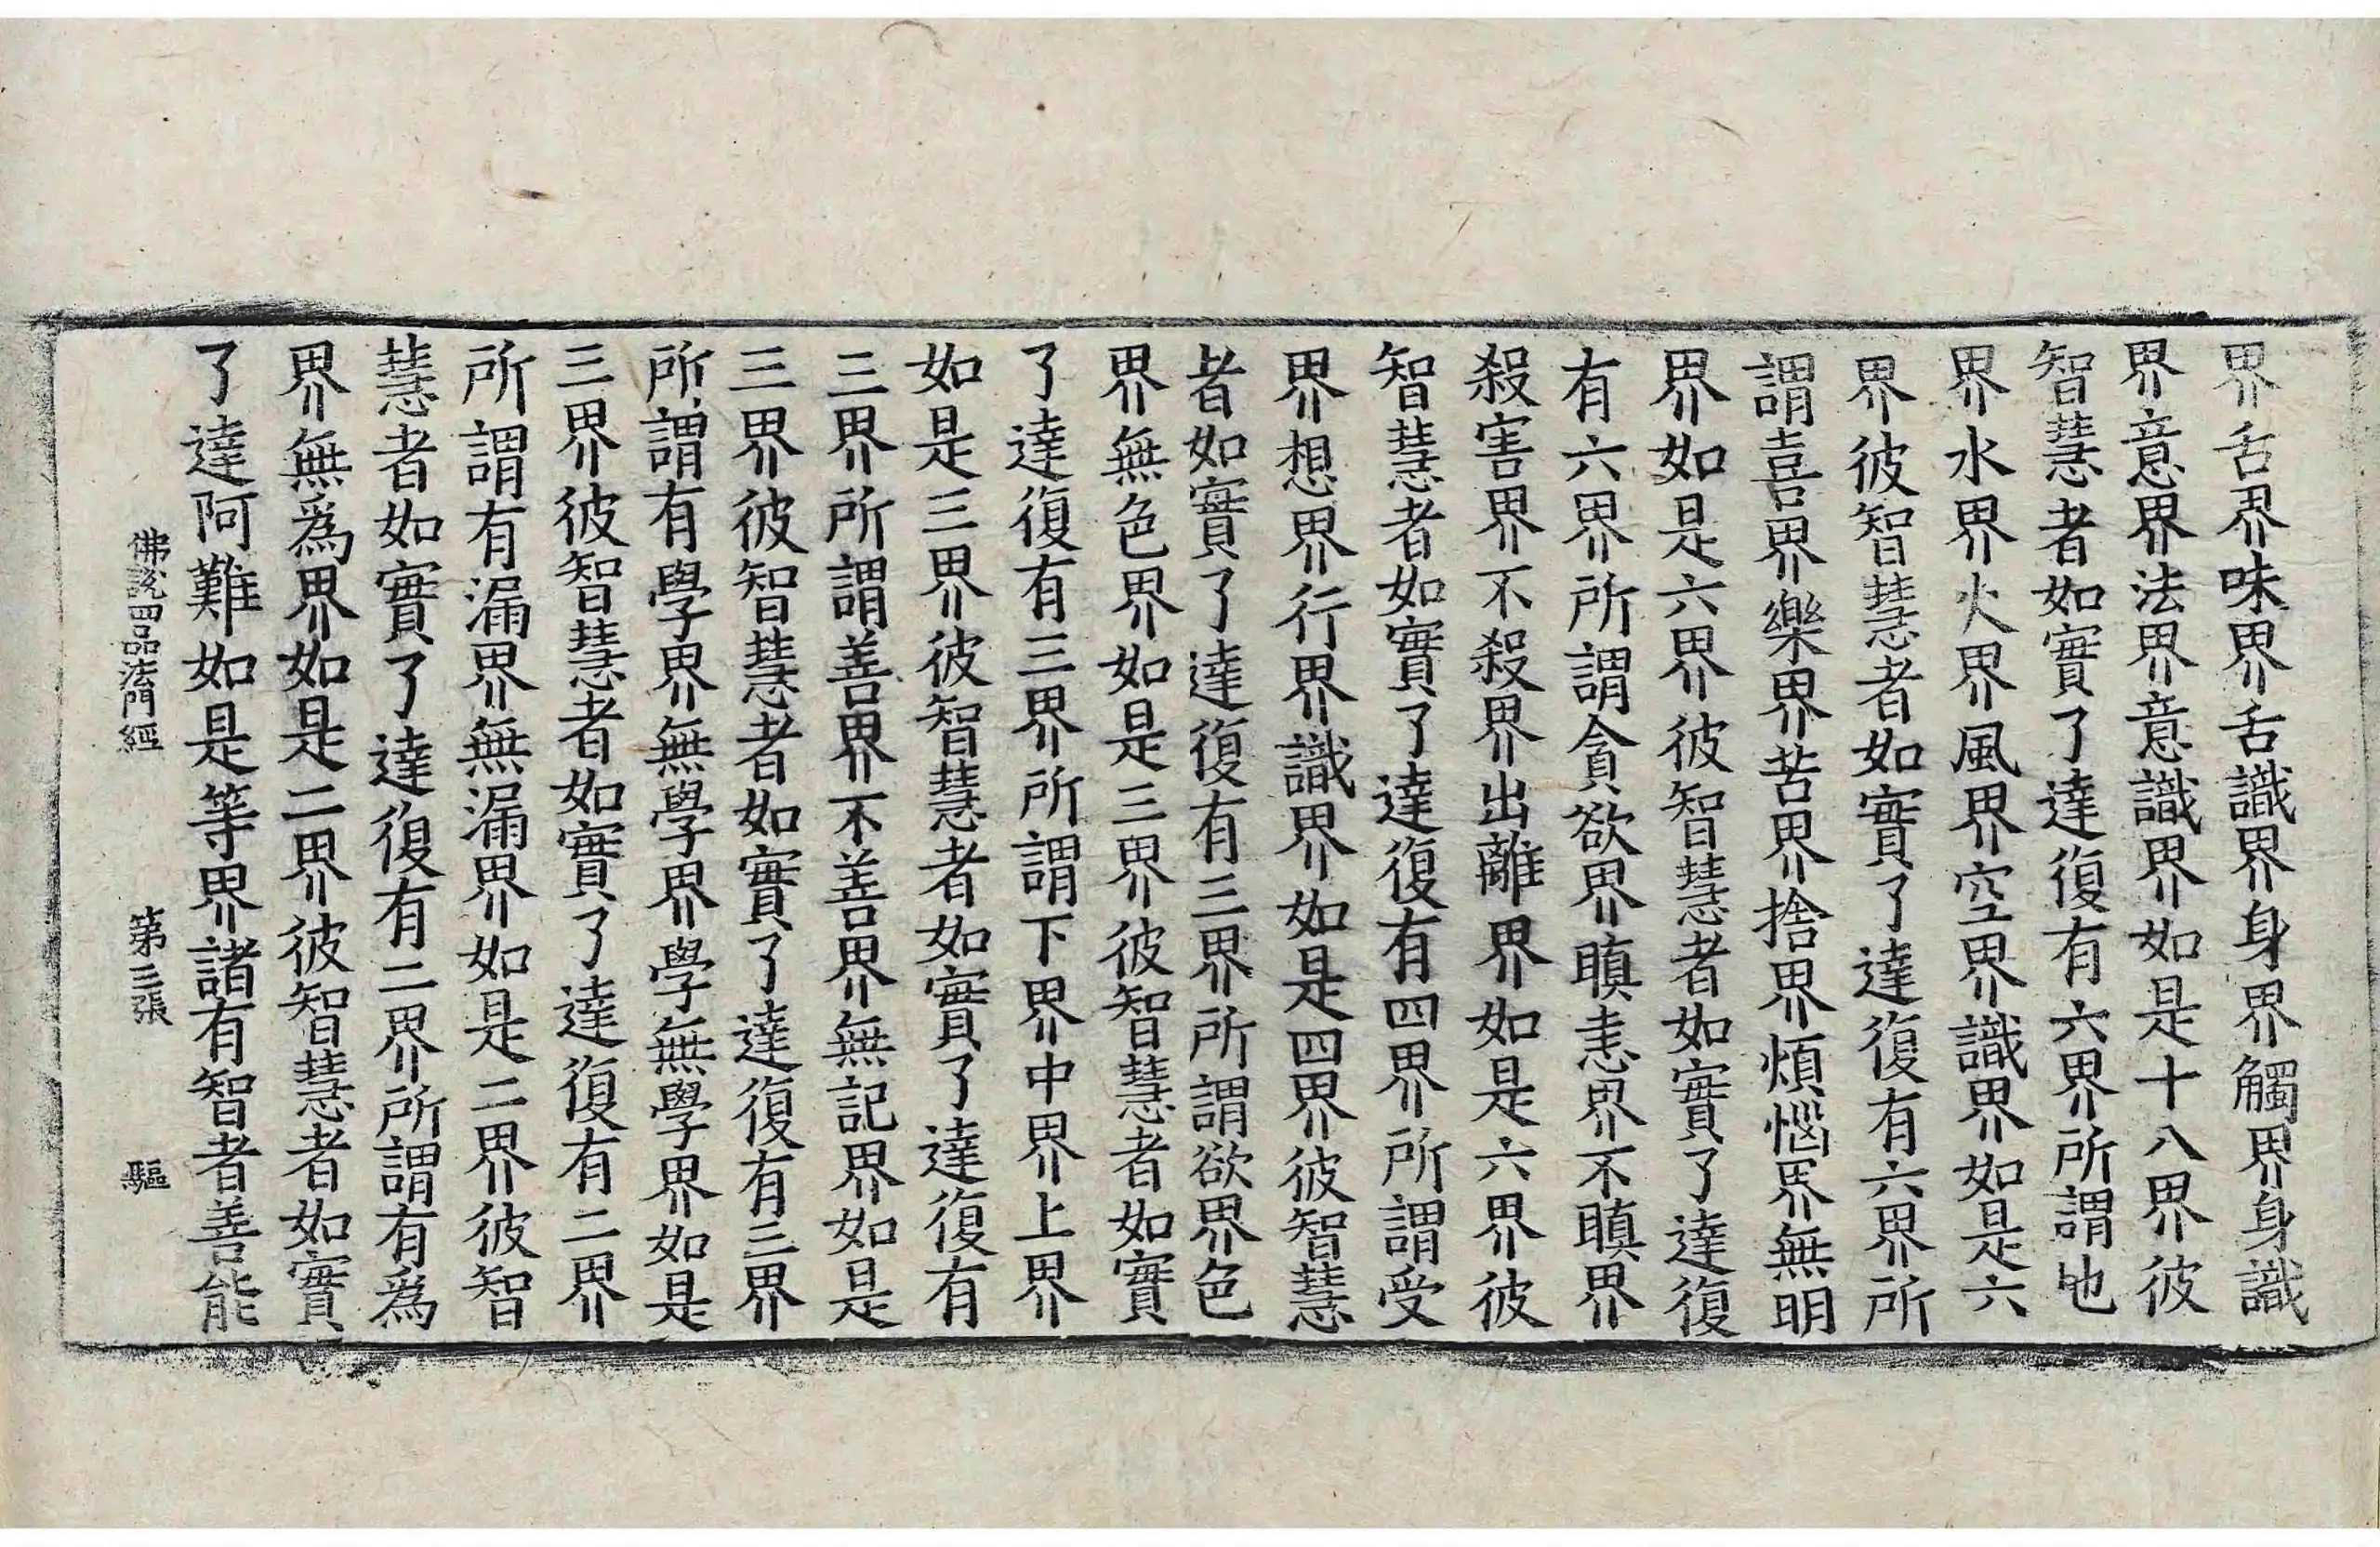 界舌界味界舌識界身界觸界身識
界意界法界意識界如是十八界彼
智慧者如實了達復有六界所謂地
界水界火界風界空界識界如是六
界彼智慧者如實了達復有六界所
謂喜界樂界苦界捨界煩惱界無明
界如是六界彼智慧者如實了達復
有六界所謂貪欲界瞋恚界不瞋界
殺害界不殺界出離界如是六界彼
智慧者如實了達復有四界所謂受
界想界行界識界如是四界彼智慧
者如實了達復有三界所謂欲界色
界無色界如是三界彼智慧者如實
了達復有三界所謂下界中界上界
如是三界彼智慧者如實了達復有
三界所謂善界不善界無記界如是
三界彼智慧者如實了達復有三界
所謂有學界無學界學無學界如是
三界彼智慧者如實了達復有二界
所謂有漏界無漏界如是二界彼智
慧者如實了達復有二界所謂有爲
界無爲界如是二界彼智慧者如實
了達阿難如是等界諸有智者善能
佛說四品法門經 第三張 驅